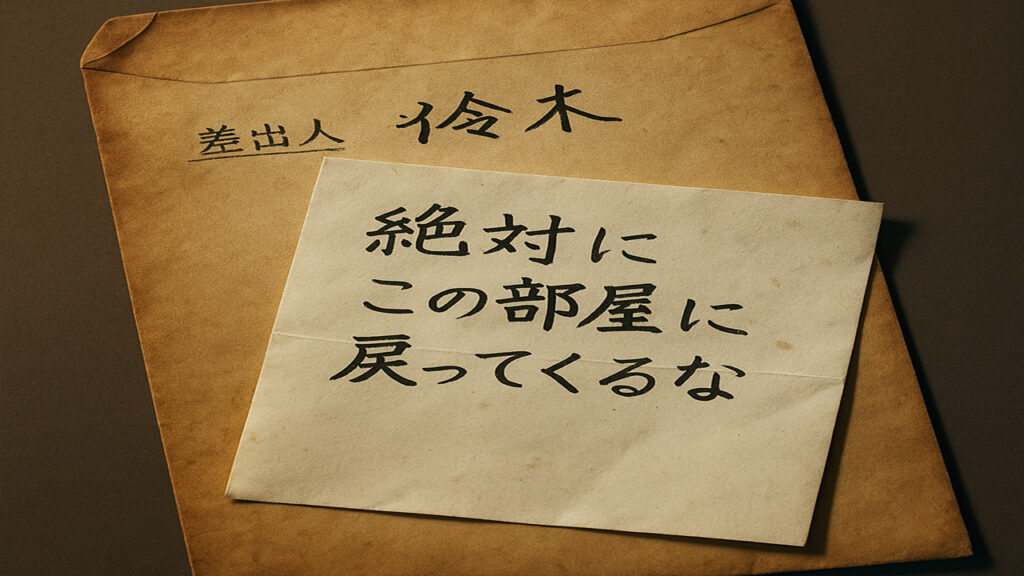 差出人 伶木
絶対に
この部屋に
戻ってくるな